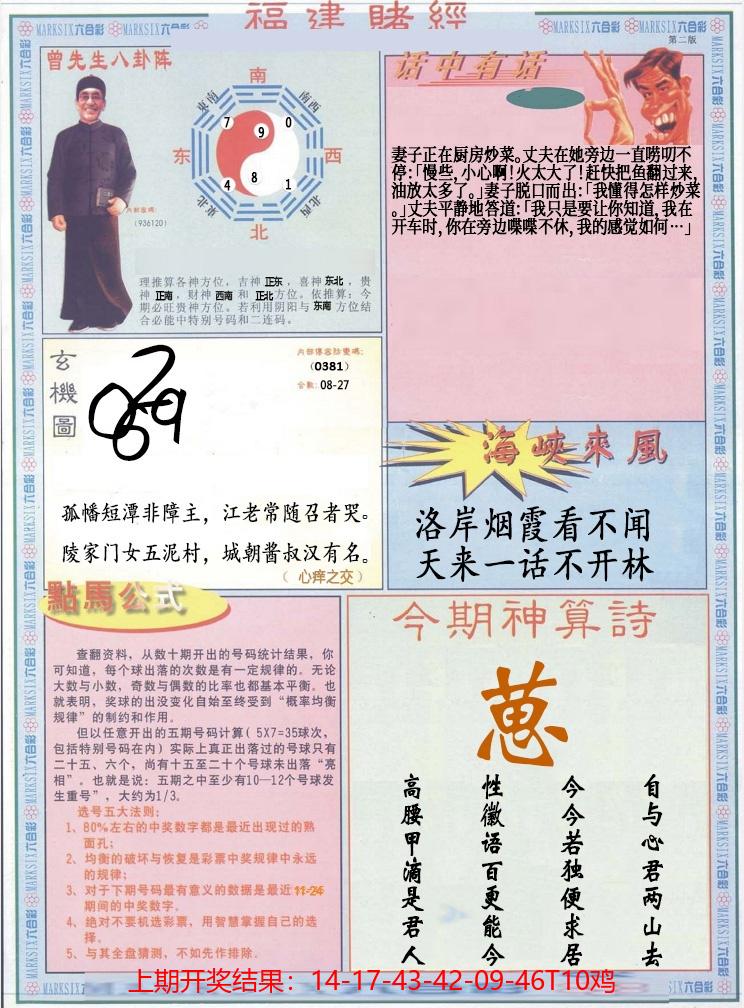 福建賭經
MARKSIX六合彩 MARKSIX六合彩 MARKSIX六合彩 MARKSIX六合彩
第二版
曾先生八卦阵
南
东南
南西
7 9 0
东
西
4 8 1
东北
北西
北
内部密碼:
(936120)
理推算各神方位，吉神 正东，喜神 东北，贵
神 正南，财神 西南 和 正北 方位。依推算：今
期必旺贵神方位。若利用阴阳与 东南 方位结
合必能中特别号码和二连码。
话中有话
妻子正在厨房炒菜。丈夫在她旁边一直唠叨不
停:「慢些,小心啊!火太大了!赶快把鱼翻过来,
油放太多了。」妻子脱口而出:「我懂得怎样炒菜
。」丈夫平静地答道:「我只是要让你知道,我在
开车时,你在旁边喋喋不休,我的感觉如何…」
玄機圖
(0381)
合數: 08-27
孤幡短潭非障主，江老常随召者哭。
陵家门女五泥村，城朝酱叔汉有名。
（ 心痒之交 ）
海峽來風
洛岸烟霞看不闻
天来一话不开林
點馬公式
查翻资料，从数十期开出的号码统计结果，你
可知道，每个球出落的次数是有一定规律的。无论
大数与小数，奇数与偶数的比率也都基本平衡。也
就表明，奖球的出没变化自始至终受到“概率均衡
规律”的制约和作用。
但以任意开出的五期号码计算( 5X7=35球次，
包括特别号码在内) 实际上真正出落过的号球只有
二十五、六个，尚有十五至二十个号球未出落“亮
相”。也就是说：五期之中至少有10—12个号球发
生重号”，大约为1/3。
选号五大法则：
1、80%左右的中奖数字都是最近出现过的熟
面孔；
2、均衡的破坏与恢复是彩票中奖规律中永远
的规律；
3、对于下期号码最有意义的数据是最近 11-24
期间的中奖数字。
4、绝对不要机选彩票，用智慧掌握自己的选
择。
5、与其全盘猜测，不如先作排除．
今期神算詩
蒽
自与心君两山去
今今若独便求居
性徽语百更能今
高腰甲滴是君人
上期开奖结果：14-17-43-42-09-46T10鸡